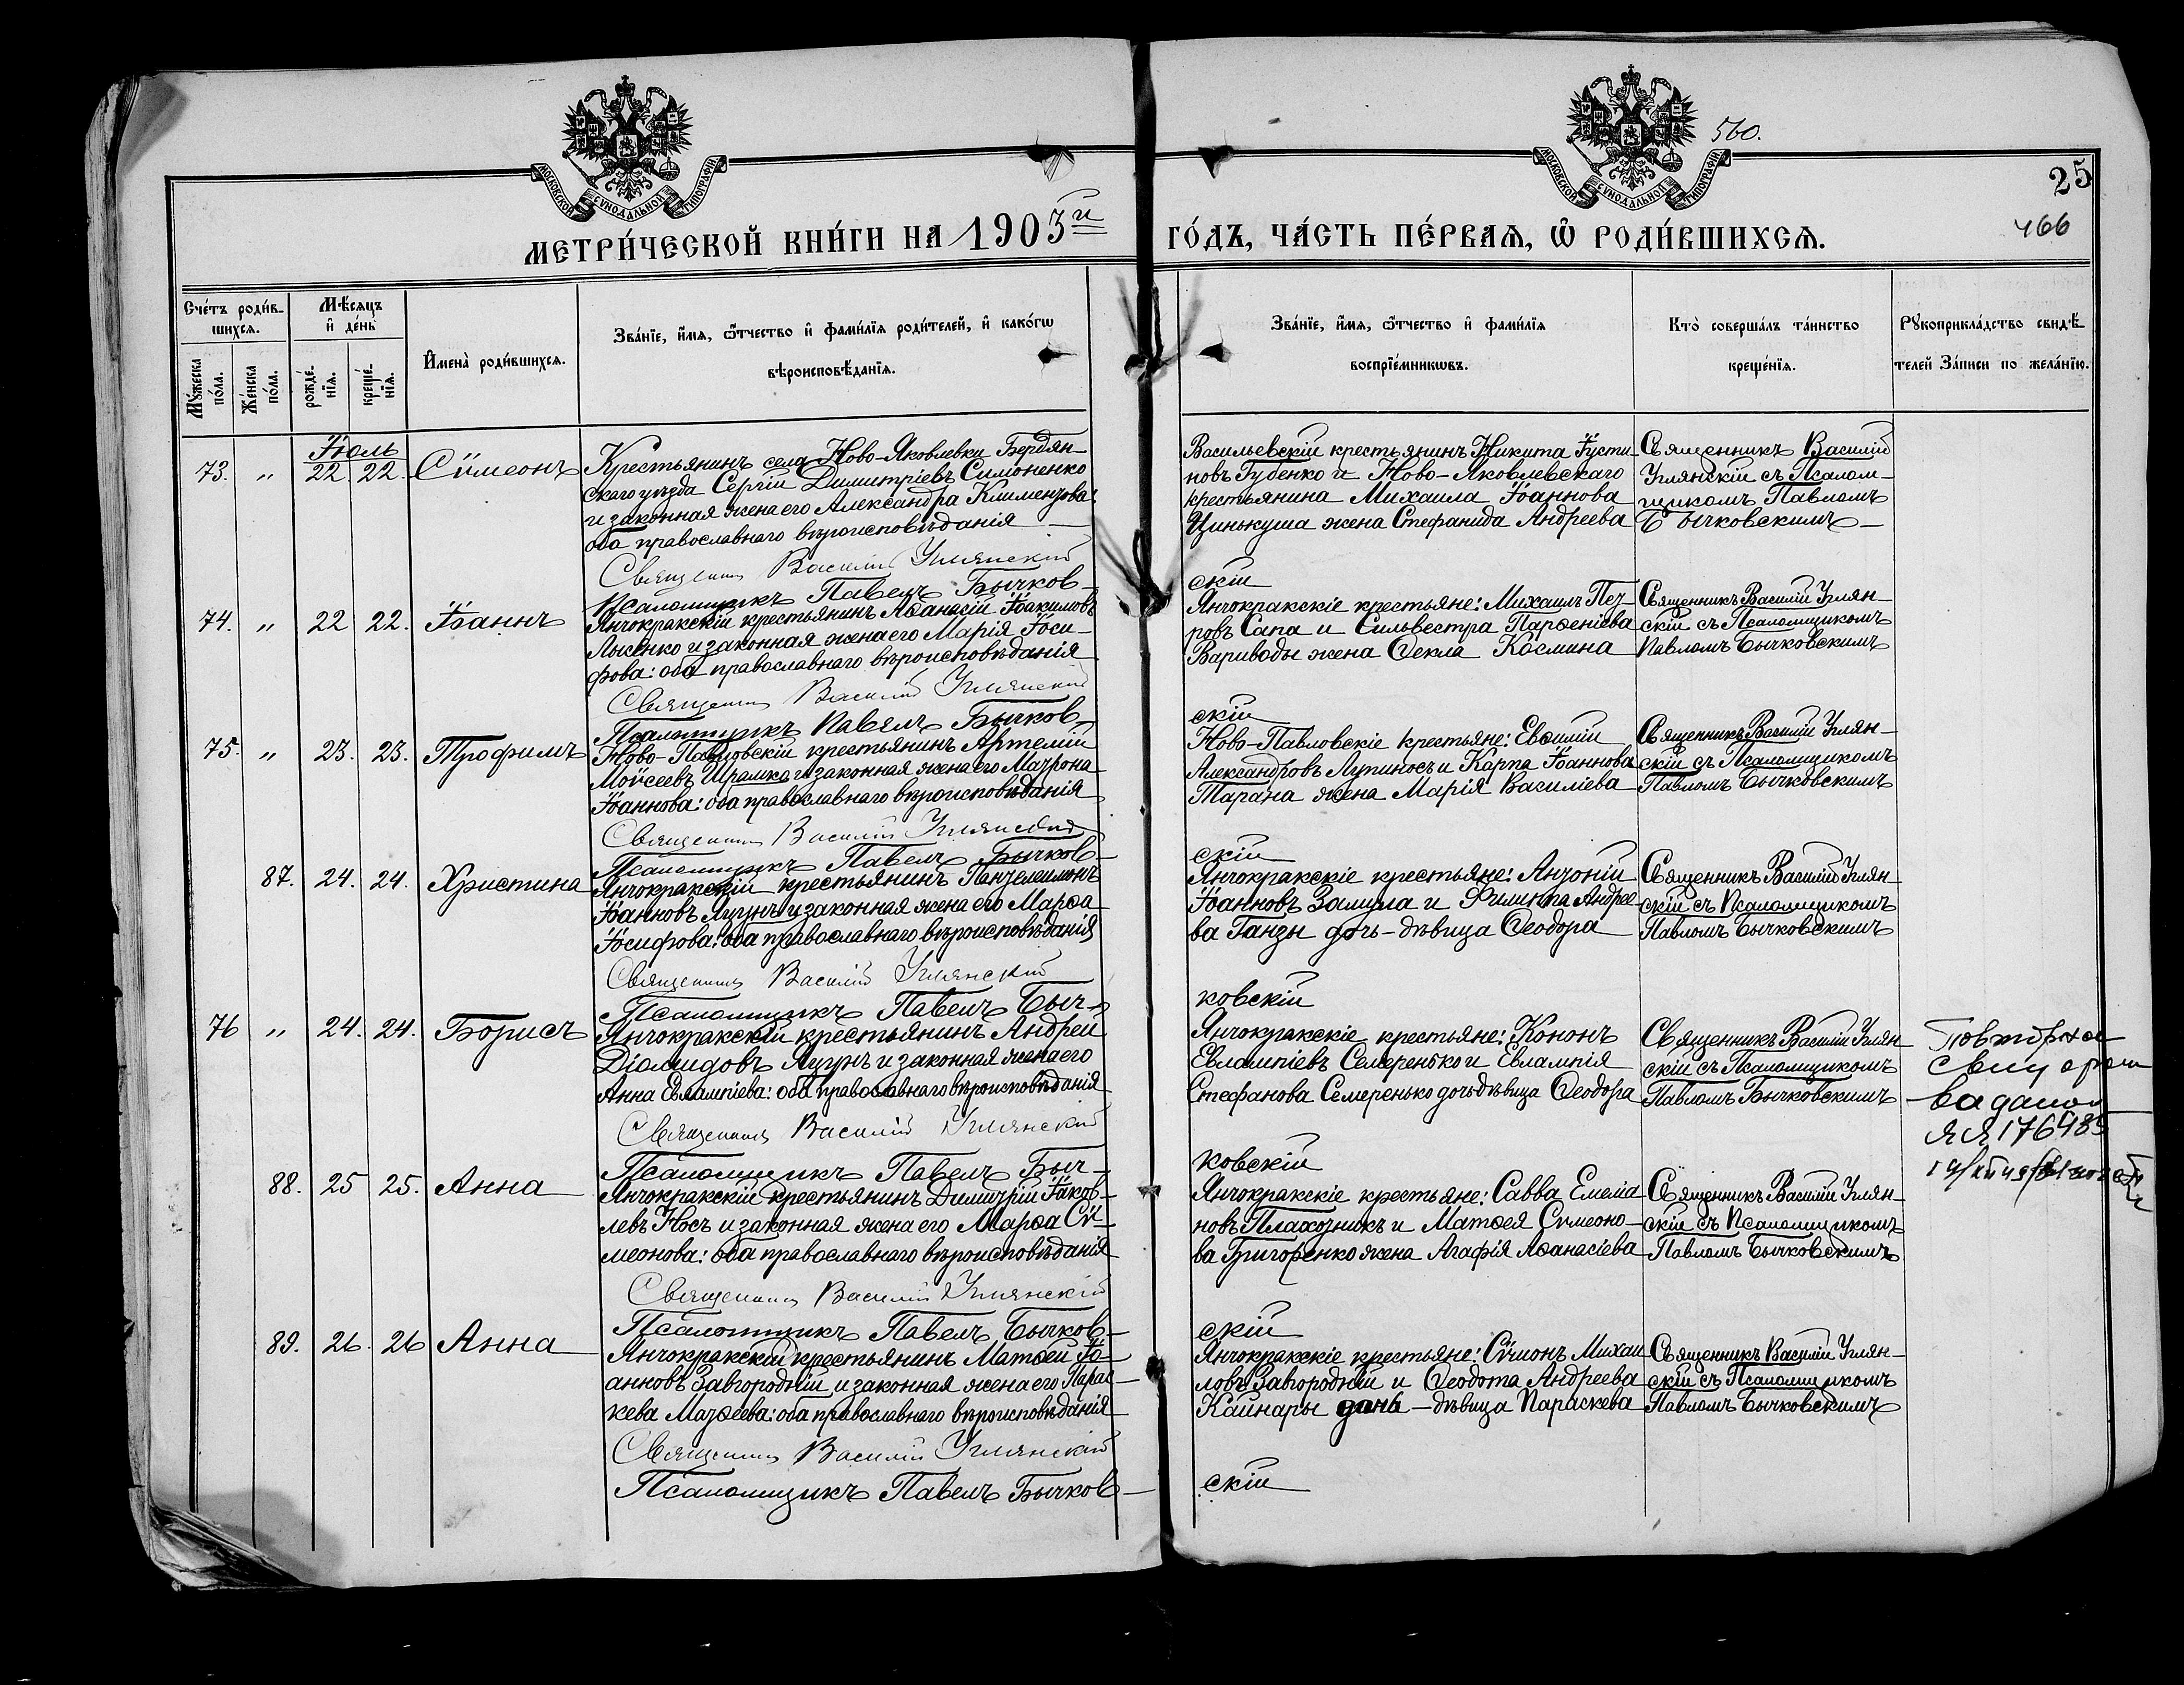 МОСКОВСКОЙ СѴНОДАЛЬНОЙ ТИПОГРАФІИ
МОСКОВСКОЙ СѴНОДАЛЬНОЙ ТИПОГРАФІИ
560.
25
466
МЕТРИ́ЧЕСКОЙ КНИ́ГИ НА 1903й ГО́ДЪ, ЧА́СТЬ ПЕ́РВАѦ, Ѡ РОДИ́ВШИХСѦ.
Сче́тъ роди́в-
шихсѧ.
Мѣ́сѧцъ
и҆ де́нь
Мꙋ́жеска по́ла.
Же́нска по́ла.
рожде́нїѧ.
креще́нїѧ.
И҆мена̀ роди́вшихсѧ.
Зва́нїе, и҆́мѧ, ѻ҆́тчество и҆ фамѝлїѧ роди́телей, и҆ како́гѡ
вѣроисповѣ́данїѧ.
Зва́нїе, и҆́мѧ, ѻ҆́тчество и҆ фамѝлїѧ
воспрїе́мникѡвъ.
Кто̀ соверша́лъ та́инство
креще́нїѧ.
Рꙋкоприкла́дство свидѣ́-
телей за́писи по жела́нїю.
Іюль
73. " 22 22. Сѵмеонъ
Крестьянинъ села Ново-Яковлевки Бердян-
скаго уѣзда Сергій Димитріевъ Симоненко
и законная жена его Александра Климентова:
оба православнаго вѣроисповѣданія
Священникъ Василій Углянскій
Псаломщикъ Павелъ Бычков-
скій
Васильевскій крестьянинъ Никита Іусти-
новъ Губенко и Ново-Яковлевскаго
крестьянина Михаила Іоаннова
Цинькуша жена Стефанида Андреева
Священникъ Василій
Углянскій съ Псалом-
щикомъ Павломъ
Бычковскимъ
74. " 22 22. Іоаннъ
Янчокракскій крестьянинъ Аѳанасій Іоакимовъ
Лысенко и законная жена его Марія Іоси-
фова: оба православнаго вѣроисповѣданія
Священникъ Василій Углянскій
Псаломщикъ Павелъ Бычков-
скій
Янчокракскіе крестьяне: Михаилъ Пет-
ровъ Сапа и Сильвестра Парѳеніева
Вариводы жена Ѳекла Космина
Священникъ Василій Углян-
скій съ Псаломщикомъ
Павломъ Бычковскимъ
75. " 23. 23. Трофимъ
Ново-Павловскій крестьянинъ Артемій
Моѵсеевъ Шрамко и законная жена его Матрона
Іоаннова: оба православнаго вѣроисповѣданія
Священникъ Василій Углянскій
Псаломщикъ Павелъ Бычков-
скій
Ново-Павловскіе крестьяне: Евѳимій
Александровъ Лупиносъ и Карпа Іоаннова
Тарана жена Марія Василіева
Священникъ Василій Углян-
скій съ Псаломщикомъ
Павломъ Бычковскимъ
87. 24. 24. Христина
Янчокракскій крестьянинъ Пантелеимонъ
Іоанновъ Лугунъ и законная жена его Марѳа
Іосифова: оба православнаго вѣроисповѣданія
Священникъ Василій Углянскій
Псаломщикъ Павелъ Быч-
ковскій
Янчокракскіе крестьяне: Антоній
Іоанновъ Залула и Филиппа Андрее-
ва Ганзы дочь-дѣвица Ѳеодора
Священникъ Василій Углян-
скій съ Псаломщикомъ
Павломъ Бычковскимъ
76 " 24. 24. Борисъ
Янчокракскій крестьянинъ Андрей
Діомидовъ Лугунъ и законная жена его
Анна Евлампіева: оба православнаго вѣроисповѣданія
Священникъ Василій Углянскій
Псаломщикъ Павелъ Быч-
ковскій
Янчокракскіе крестьяне: Кононъ
Евлампіевъ Семеренько и Евлампія
Стефанова Семеренько дочь дѣвица Ѳеодора
Священникъ Василій Углян
скій съ Псаломщикомъ
Павломъ Бычковскимъ
Повторное
176485
88. 25 25. Анна
Янчокракскій крестьянинъ Димитрій Іаков-
левъ Носъ и законная жена его Марѳа Сѵ-
меонова: оба православнаго вѣроисповѣданія
Священникъ Василій Углянскій
Псаломщикъ Павелъ Бычков-
скій
Янчокракскіе крестьяне: Савва Емелiа
новъ Плахотникъ и Матѳея Сѵмеоно-
ва Григоренко жена Агафія Аѳанасіева
Священникъ Василій Углян-
скій съ Псаломщикомъ
Павломъ Бычковскимъ
89. 26. 26 Анна
Янчокракскій крестьянинъ Матѳей Іо-
анновъ Завгородній и законная жена его Парас-
кева Матѳеева: оба православнаго вѣроисповѣданія
Священникъ Василій Углянскій
Псаломщикъ Павелъ Бычков-
скій
Янчокракскіе крестьяне: Сѵмонъ Михаи
ловъ Завгородній и Ѳеодота Андреева
Кайнары дочь-дѣвица Параскева
Священникъ Василій Углян-
скій съ Псаломщикомъ
Павломъ Бычковскимъ